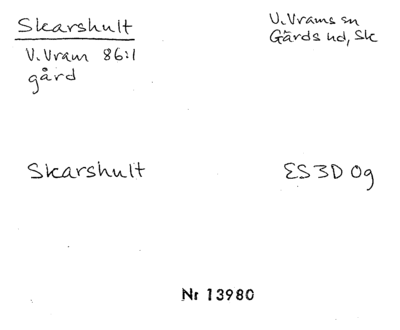 Skarshult
V. Vram 86:1
gård
V. Vrams sn
Gärds hd, Sk
Skarshult
ES 3D 0g
Nr 13980